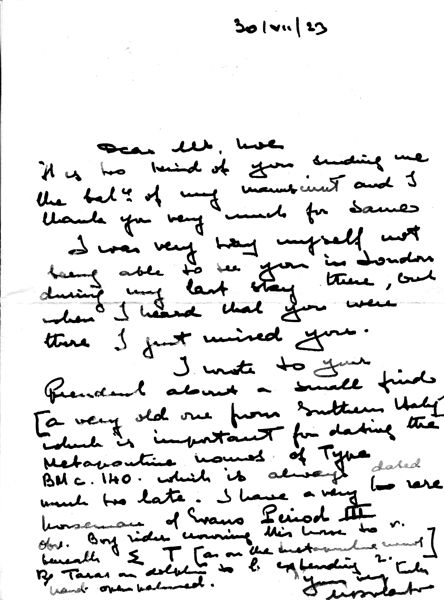 30/VII/23
Dear Mr. Noe
It is too kind of you sending me
the bal^ce of my manuscript and I
thank you very much for same
I was very sorry myself not
being able to see you in London
during my last stay there, but
when I heard that you were
there I just missed you.
I wrote to your
President about a small find
[a very old one from Southern Italy]
which is important for dating the
Metapontine nomos of Type
BMc. 140. which is always dated
much too late. I have a very rare
horseman of Evans Period III
Obv. Boy rider crowning his horse to r.
beneath Σ T [as on the Metapontine]
Taras on dolphin to l. extending
hand
Yours very truly